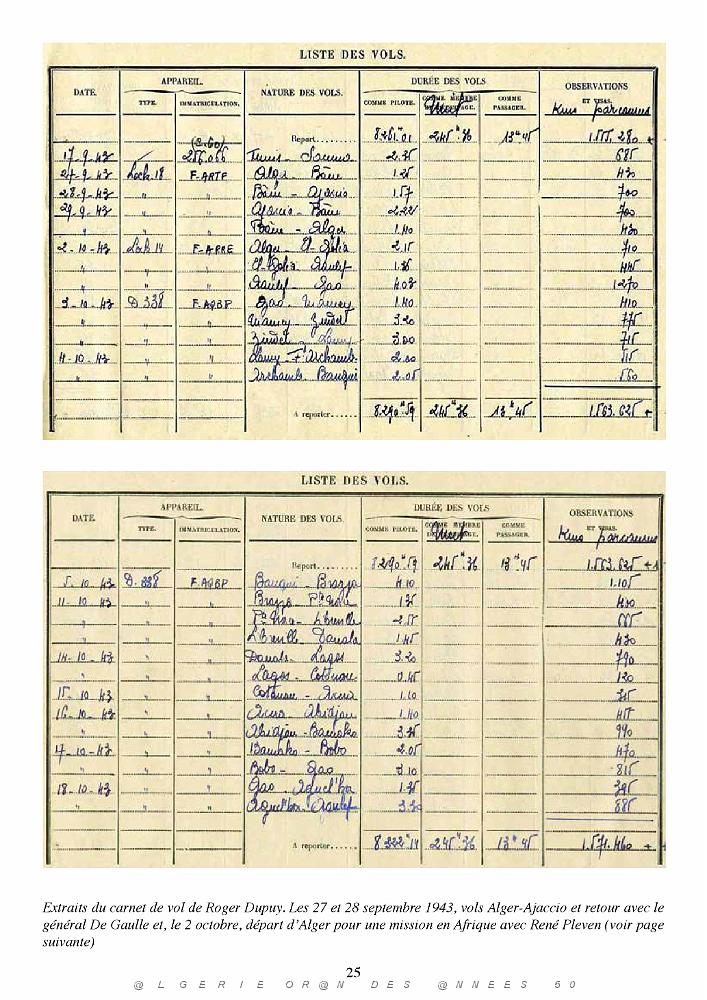 LISTE DES VOLS.
DATE. APPAREIL. NATURE DES VOLS. DURÉE DES VOLS OBSERVATIONS
TYPE. IMMATRICULATION. COMME PILOTE. COMME PASSAGER. ET VISAS. Kms parcourus
Report 8.261.01 245.36 13.45 1.555.280
17-9-43 Tunis - 2.35 685
27-9-43 Lock.18 F-ARTF Alger - Bône 1.25 430
28-9-43 " " Bône - Ajaccio 1.57 700
29-9-43 " " Ajaccio - Bône 2.22 700
" " " Bône - Alger 1.40 430
2-10-43 Lock 14 F-ARRE Alger El-Goléa 2.15 710
" " " El-Goléa Aoulef 1.35 445
" " " Aoulef - Gao 4.02 1270
3-10-43 D.338 F-AQBP Gao - Niamey 1.40 410
" " " Niamey Zinder 3.20 775
" " " Zinder - Lamy 3.00 715
4-10-43 " " Lamy - Ft Archamb. 2.00 515
" " " Archamb. Bangui 2.05 560
A reporter...... 8.290.59 245.36 13.45 1.563.625
LISTE DES VOLS.
DATE. APPAREIL. NATURE DES VOLS. DURÉE DES VOLS OBSERVATIONS
TYPE. IMMATRICULATION. COMME PILOTE. COMME PASSAGER. ET VISAS. Kms parcourus
Report...... 8290.59 245.36 13.45 1.563.625
5-10-43 D.338 F-AQBP Bangui - Brazza 4.10 1.105
11-10-43 " " Brazza - Pte Noire 1.35 430
" " " Pte Noire - L'breville 2.55
" " " L'breville Douala 1.45 430
14-10-43 " " Douala - Lagos 3.20 790
" " " Lagos - Cotonou 0.45 120
15-10-43 " " Cotonou - Accra 1.10 345
16-10-43 " " Accra - Abidjan 1.40 455
" " " Abidjan - Bamako 3.35 990
17-10-43 " " Bamako - Bobo 2.05 470
" " " Bobo - Gao 3.10 815
18-10-43 " " Gao Aguel'hoc 1.35 395
" " " Aguel'hoc - Aoulef 3.30 885
A reporter...... 8322.14 245.36 13.45 1.571.460
Extraits du carnet de vol de Roger Dupuy. Les 27 et 28 septembre 1943, vols Alger-Ajaccio et retour avec le
général De Gaulle et, le 2 octobre, départ d'Alger pour une mission en Afrique avec René Pleven (voir page
suivante)
25
@ L G E R I E O R @ N D E S @ N N E E S 5 0